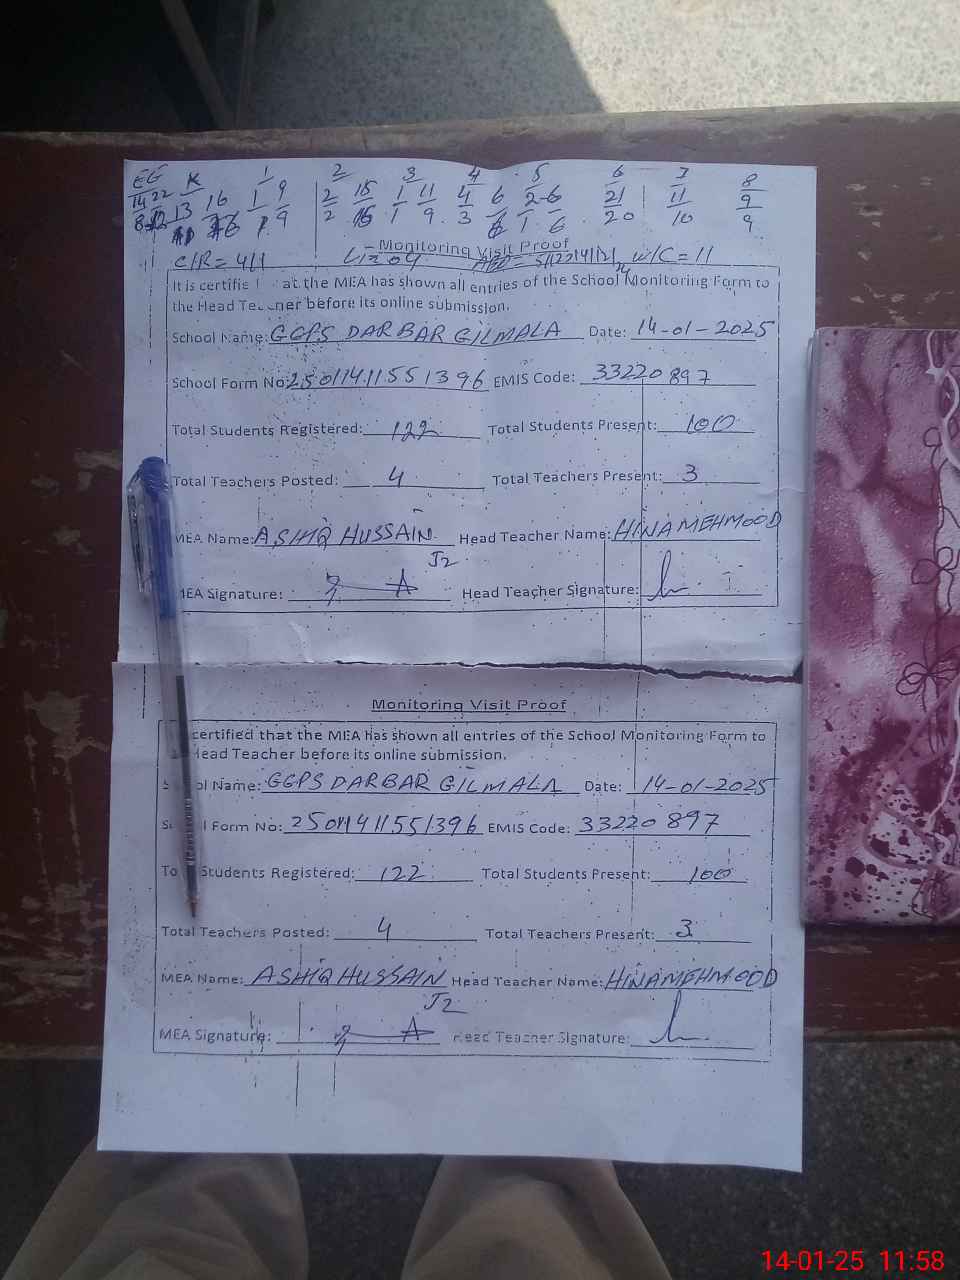 EG K 1 2 3 4 5 6 7 8
14 22 16 1 9 2 15 1 11 4 6 2-6 21 11 9
13 1 9 2 1 9 3 1 6 20 10 9
Monitoring Visit Proof
C/R = 4/1 W/C = 11
It is certifie at the MEA has shown all entries of the School Monitoring Form to
the Head Te ner before its online submission.
School Name: GGPS DARBAR GILMALA Date: 14-01-2025
School Form No: 25011411551396 EMIS Code: 33220897
Total Students Registered: 122 Total Students Present: 100
Total Teachers Posted: 4 Total Teachers Present: 3
MEA Name: ASHIQ HUSSAIN Head Teacher Name: HINA MEHMOOD
J2
MEA Signature: Head Teacher Signature:
Monitoring Visit Proof
certified that the MEA has shown all entries of the School Monitoring Form to
Head Teacher before its online submission.
ol Name: GGPS DARBAR GILMALA Date: 14-01-2025
l Form No: 25011411551396 EMIS Code: 33220897
To Students Registered: 122 Total Students Present: 100
Total Teachers Posted: 4 Total Teachers Present: 3
MEA Name: ASHIQ HUSSAIN Head Teacher Name: HINA MEHMOOD
J2
MEA Signature: Head Teacher Signature:
14-01-25 11:58